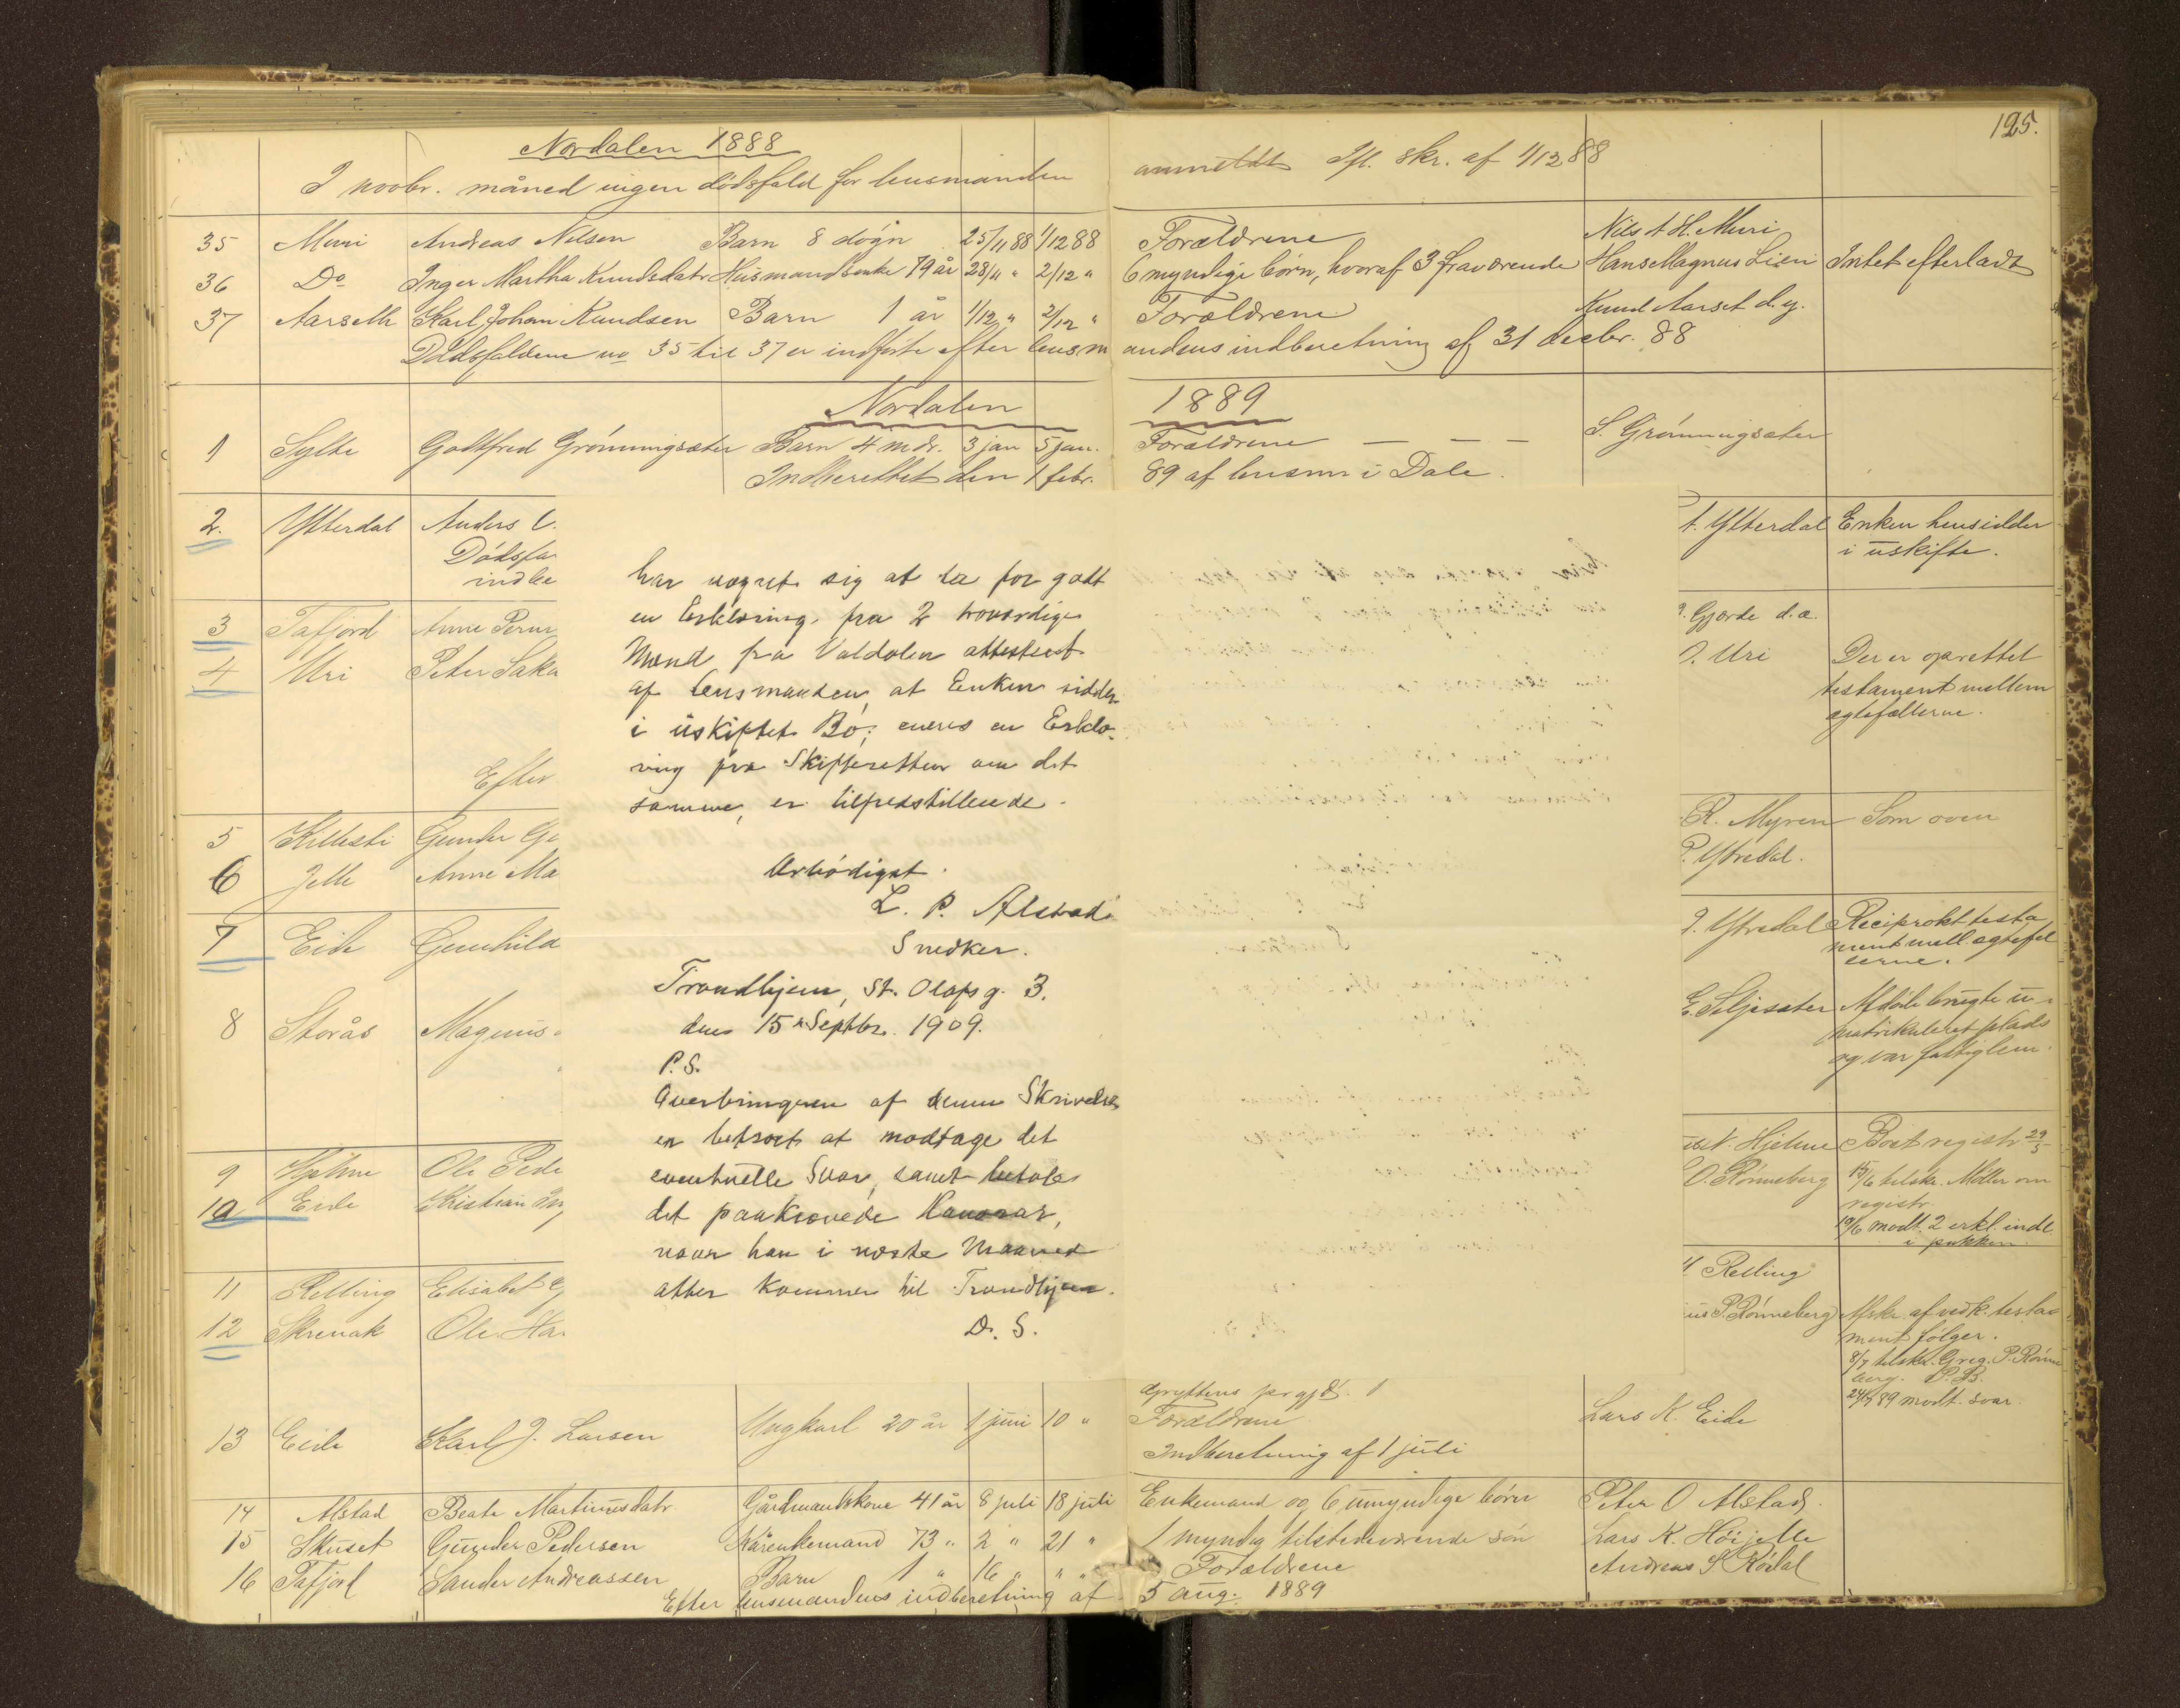 125.
Nordalen 1888
I novbr. måned ingen dödsfald for lensmanden anmeldt Ifl. skr. af 1/12 88
35 Muri Andreas Nilsen Barn 8 døgn 25/11 88 1/12 88 Forældrene Nils A H. Muri
36 Do Inger Martha Knudsdatr Husmandsenke 79 år 28/11 " 2/12 " 6 myndige börn, hvoraf 3 fraværende Hans Magnus Lien Intet efterladt
37 Aarseth Karl Johan Knudsen Barn 1 år 1/12 " 2/12 " Forældrene Knud Aarset d.y.
Dödsfaldene no 35 til 37 er indförte efter lensmandens indberetning af 31 decbr. 88
Nordalen 1889
1 Sylte Gottfred Grönningsæter Barn 4 mdr. 3 jan 5 jan. Forældrene — — — S. Grönningsæter
Indberettet den 1 febr. 89 af lensm i Dale.
2. Ytterdal Anders t. Ytterdal Enken hensidder
Dödsfa i uskifte.
indbe
3 Tafjord Anne Gjærde d.æ.
4 Uri Peter Saka O. Uri Der er oprettet
testament mellem
ægtefællerne.
Efter
5 Killesti Gunder Gj R. Myren Som oven
6 Jelle Anne Ma P. Ytredal.
7 Eide Gunhild Ytredal Reciprokt testa
ment mell. ægtefæl
lerne.
8 Storås Magnus E. Seljesæter Afdöde brugte u-
matrikuleret plads
og var fattiglem.
9 Hjelme Ole Pede N. Hjelme Boet registr 29/5
10 Eide Kristian O. Rönneberg 15/6 tilskr. Möller om
registr.
19/6 modt. 2 erkl. indl.
i pakken
11 Relling Elisabet Relling
12 Skrenak Ole Ha P. Rönneberg Afskr. af vedk. testa
ment fölger.
8/7 tilskr. Greg. P. Rönne
berg. P.B.
89 modt. svar
har vægret sig at ta for godt
en Erklæring fra 2 troværdige
Mænd fra Valdalen attestert
af lensmanden, at Enken sidder
i uskiftet Bo; eneres en Erklæ-
ring fra Skifteretten om det
samme, er tilfredstillende.
Ærbödigst.
L. P. Alstad
Snedker.
Trondhjem, St. Olafs g. 3.
den 15 Septbr. 1909.
P.S.
Overbringeren af denne Skrivelse
er betroet at modtage det
eventuelle Svar, samt betale
det paakrævede Honorar,
naar han i næste Maaned
atter kommer til Trondhjem.
D. S.
13 Eide Karl J. Larsen Ungkarl 20 år 1 juni 10 " Forældrene Lars K. Eide
Indberetning af 1 juli
14 Alstad Beate Martinusdatr Gårdmandskone 41 år 8 juli 18 juli Enkemand og 6 umyndige börn Peter O Alstad.
15 Skuset Gunder Pedersen Kårenkemand 73 " 2 " 21 " 1 myndig tilstedeværende sön Lars K. Höijelle
16 Tafjord Sander Andreassen Barn 1 " 16 " " " Forældrene Andreas S Rödal
Efter lensmandens indberetning af 5 aug. 1889